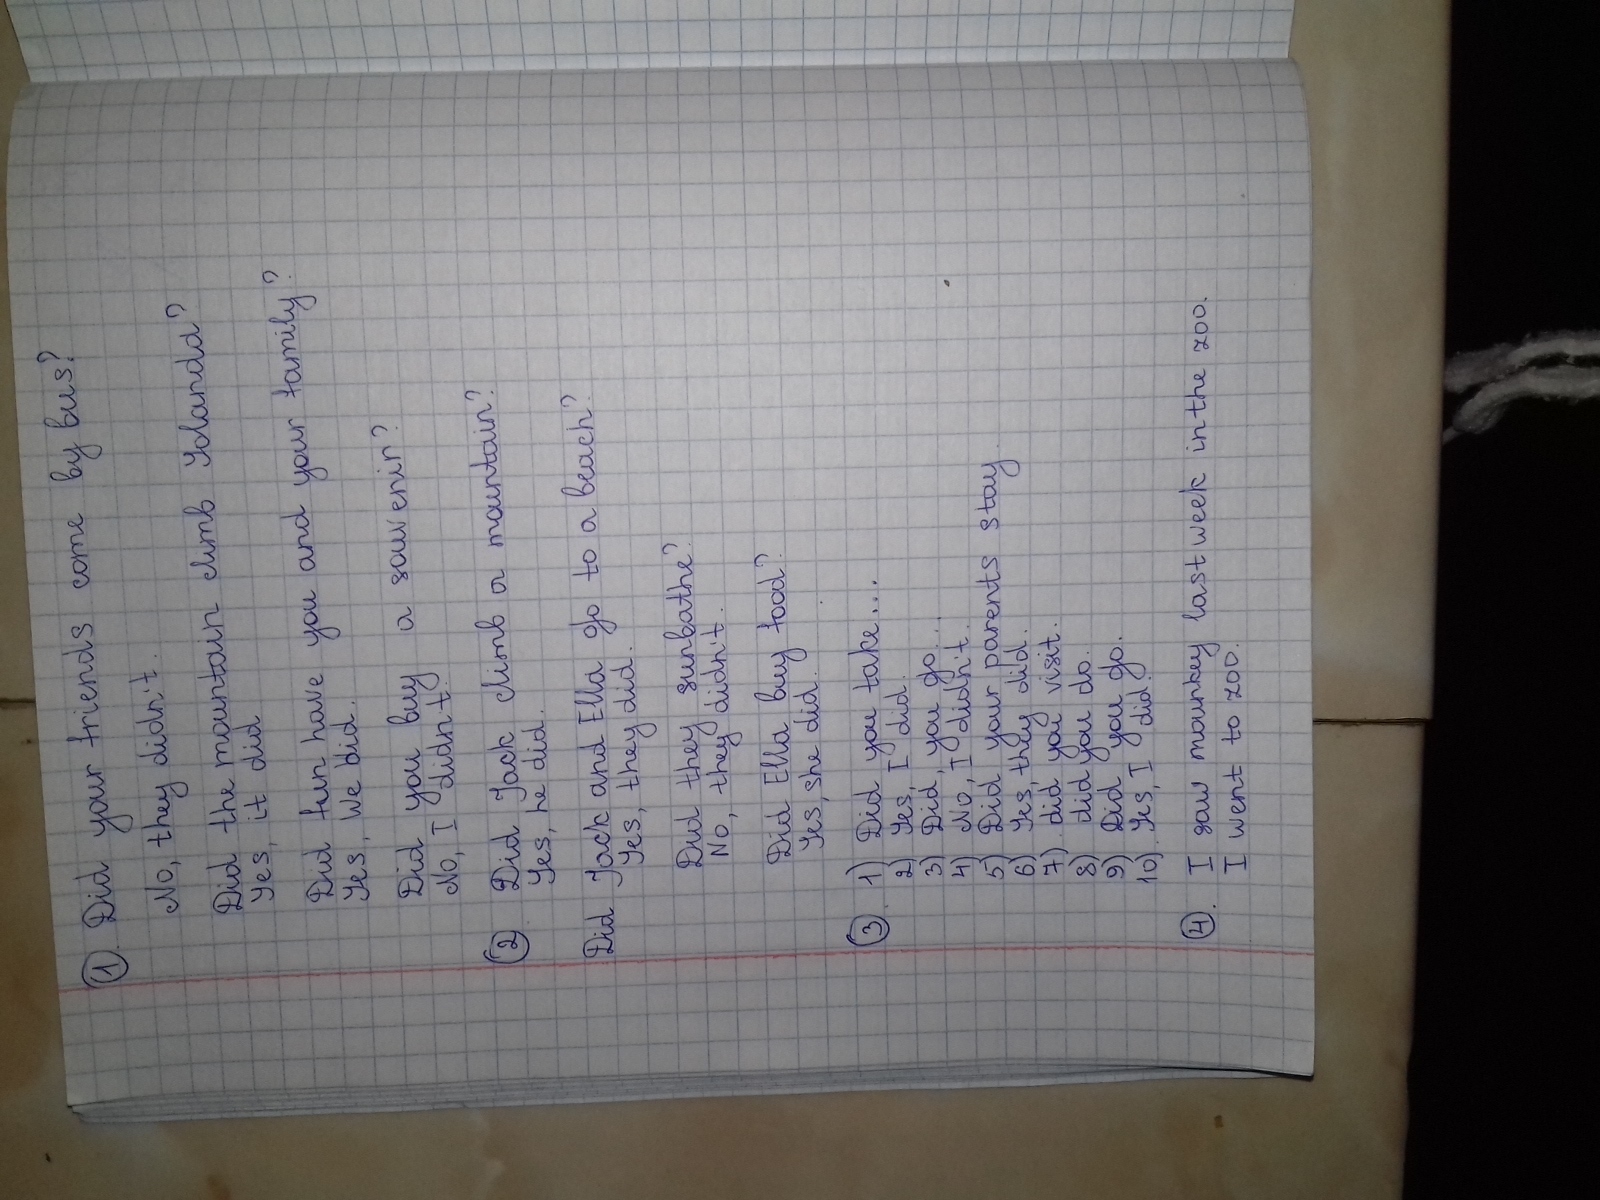 1. Did your friends come by bus?
No, they didn't.
Did the mountain climb Yolanda?
Yes, it did
Did fun have you and your family?
Yes, We did.
Did you buy a souvenir?
No, I didn't.
2 Did Jack climb a mountain?
Yes, he did.
Did Jack and Ella go to a beach?
Yes, they did.
Did they sunbathe?
No, they didn't.
Did Ella buy food?
Yes, she did.
3. 1) Did you take...
2) Yes, I did.
3) Did, you go...
4) No, I didn't.
5) Did your parents stay
6) Yes, they did.
7) did you visit.
8) did you do.
9) Did you go.
10). Yes, I did.
4. I saw mounkey last week in the zoo.
I went to zoo.